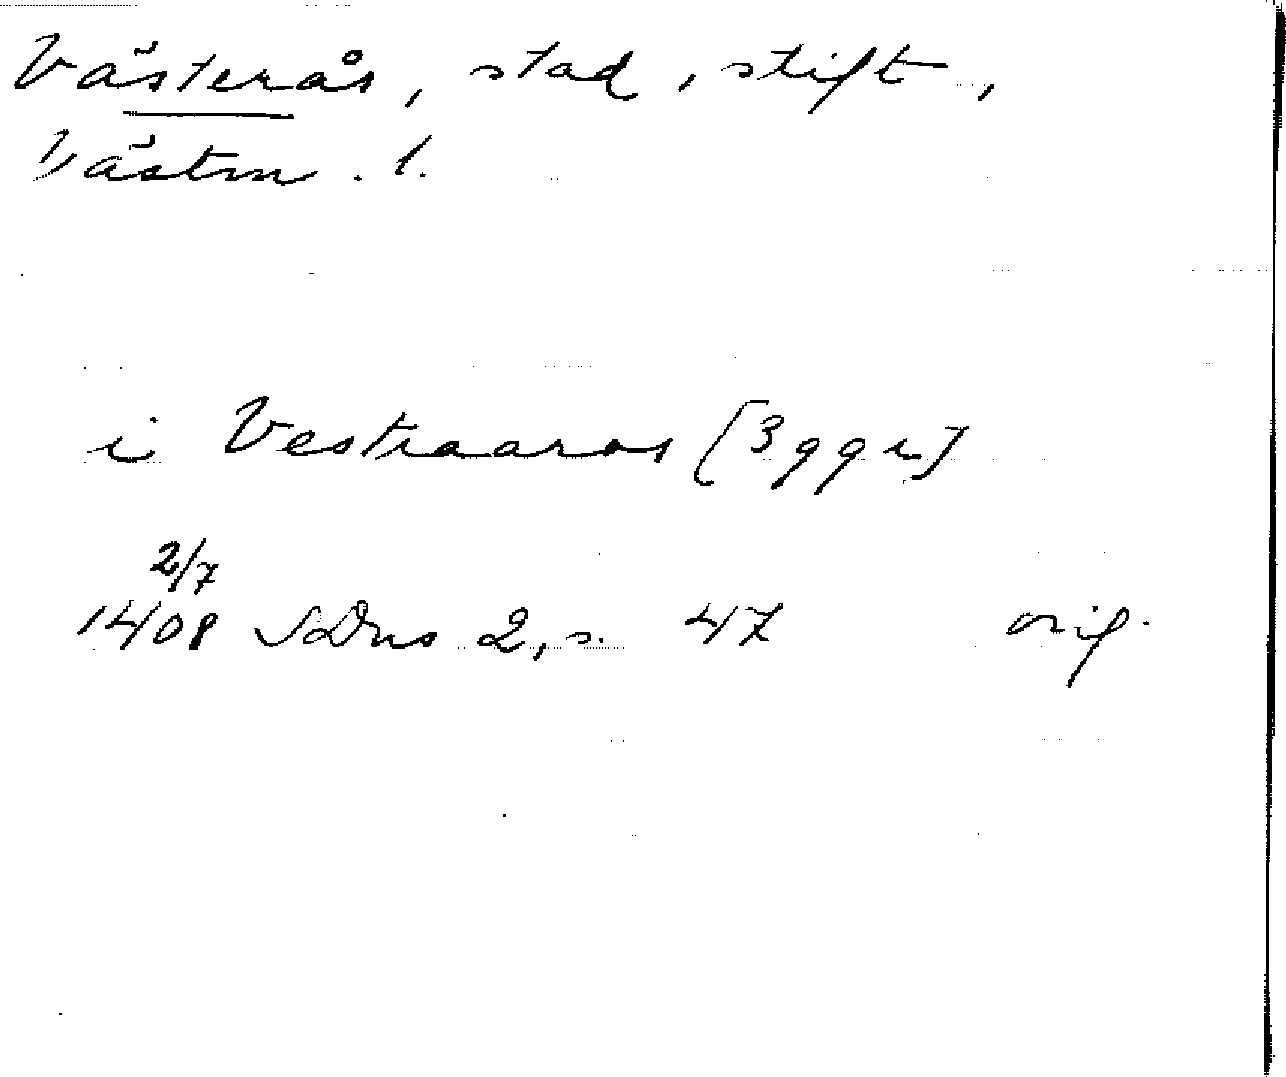 Västerås, stad, stift,
Västm. l.
i Vestraaros [3 ggr]
2/7
1408 SDns 2, s. 47 orig.